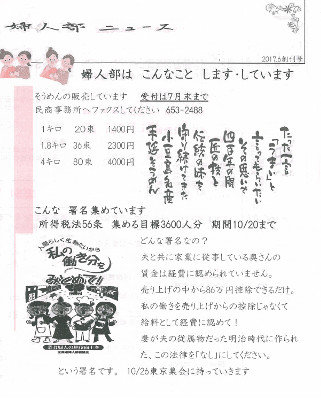 婦人部 ニュース
2017.6創刊号
婦人部は こんなこと します・しています
そうめんの販売しています 受付は7月末まで
民商事務所へファックスください 653-2488
1キロ 20束 1400円
1.8キロ 36束 2300円
4キロ 80束 4000円
ただ一言
「うまい」と
言ってもらいたい
その思いで
四百年の間
匠の技と
伝統の味を
守り続けてきた
小豆島名産
手延そうめん
こんな 署名集めています
所得税法56条 集める目標3600人分 期間10/20まで
人間らしく生きたいから
私の
働き分を
みとめて!
どんな署名なの?
夫と共に家業に従事している奥さんの
賃金は経費に認められていません。
売り上げの中から86万円控除できるだけ。
私の働きを売り上げからの控除じゃなくて
給料として経費に認めて!
妻が夫の従属物だった明治時代に作られ
た、この法律を「なし」にしてください。
という署名です。 10/26東京集会に持っていきます